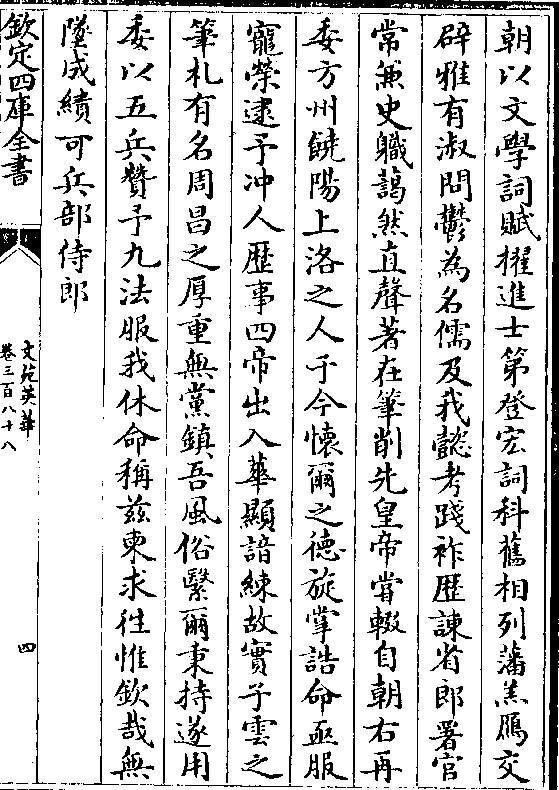 朝以文學詞賦擢進士第登宏詞科舊相列藩羔鴈交
辟雅有淑問鬱為名儒及我懿考踐祚歴諫省郎署官
常兼史職藹然直聲著在筆削先皇帝甞輟自朝右再
委方州饒陽上洛之人于今懷爾之德旋掌誥命亟服
寵榮逮予冲人歴事四帝出入華顯諳練故實子雲之
筆札有名周昌之厚重無黨鎮吾風俗繄爾秉持遂用
委以五兵贊予九法服我休命稱兹柬求往惟欽哉無
墜成績可兵部侍郎
欽定四庫全書
文苑英華
卷三百八十八
四